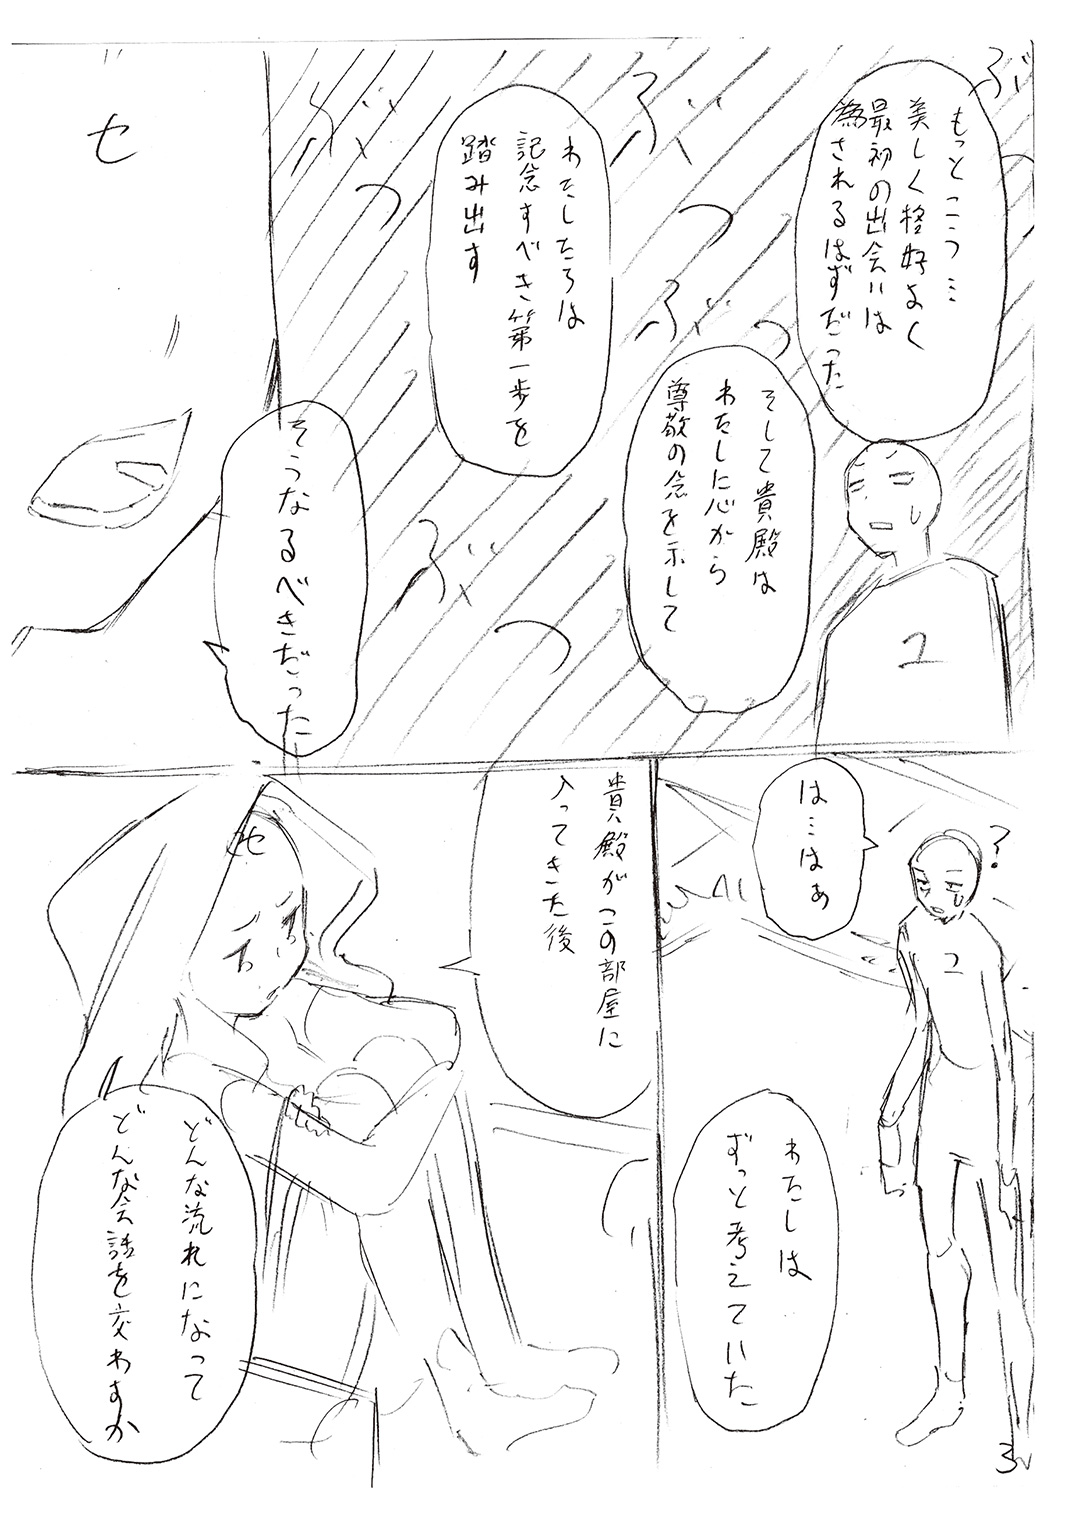 もっとこう…
美しく格好よく
最初の出会いは
為されるはずだった
ぶつ
ぶつ
ぶつ
ぶつ
ユ
そして貴殿は
わたしに心から
尊敬の念を示して
わたしたちは
記念すべき第一歩を
踏み出す
セ
そうなるべきだった
?
は…はぁ
ユ
わたしは
ずっと考えていた
貴殿がこの部屋に
入ってきた後
セ
どんな流れになって
どんな会話を交わすか